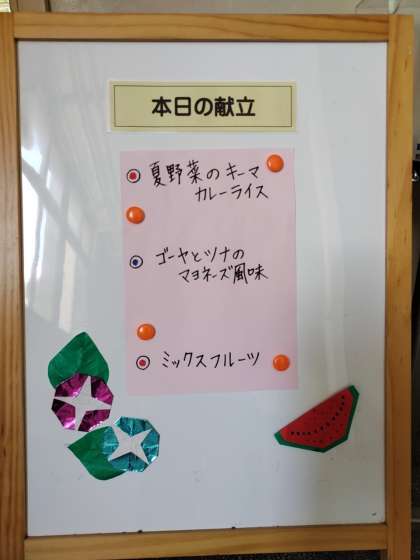 本日の献立
夏野菜のキーマ
カレーライス
ゴーヤとツナの
マヨネーズ風味
ミックスフルーツ